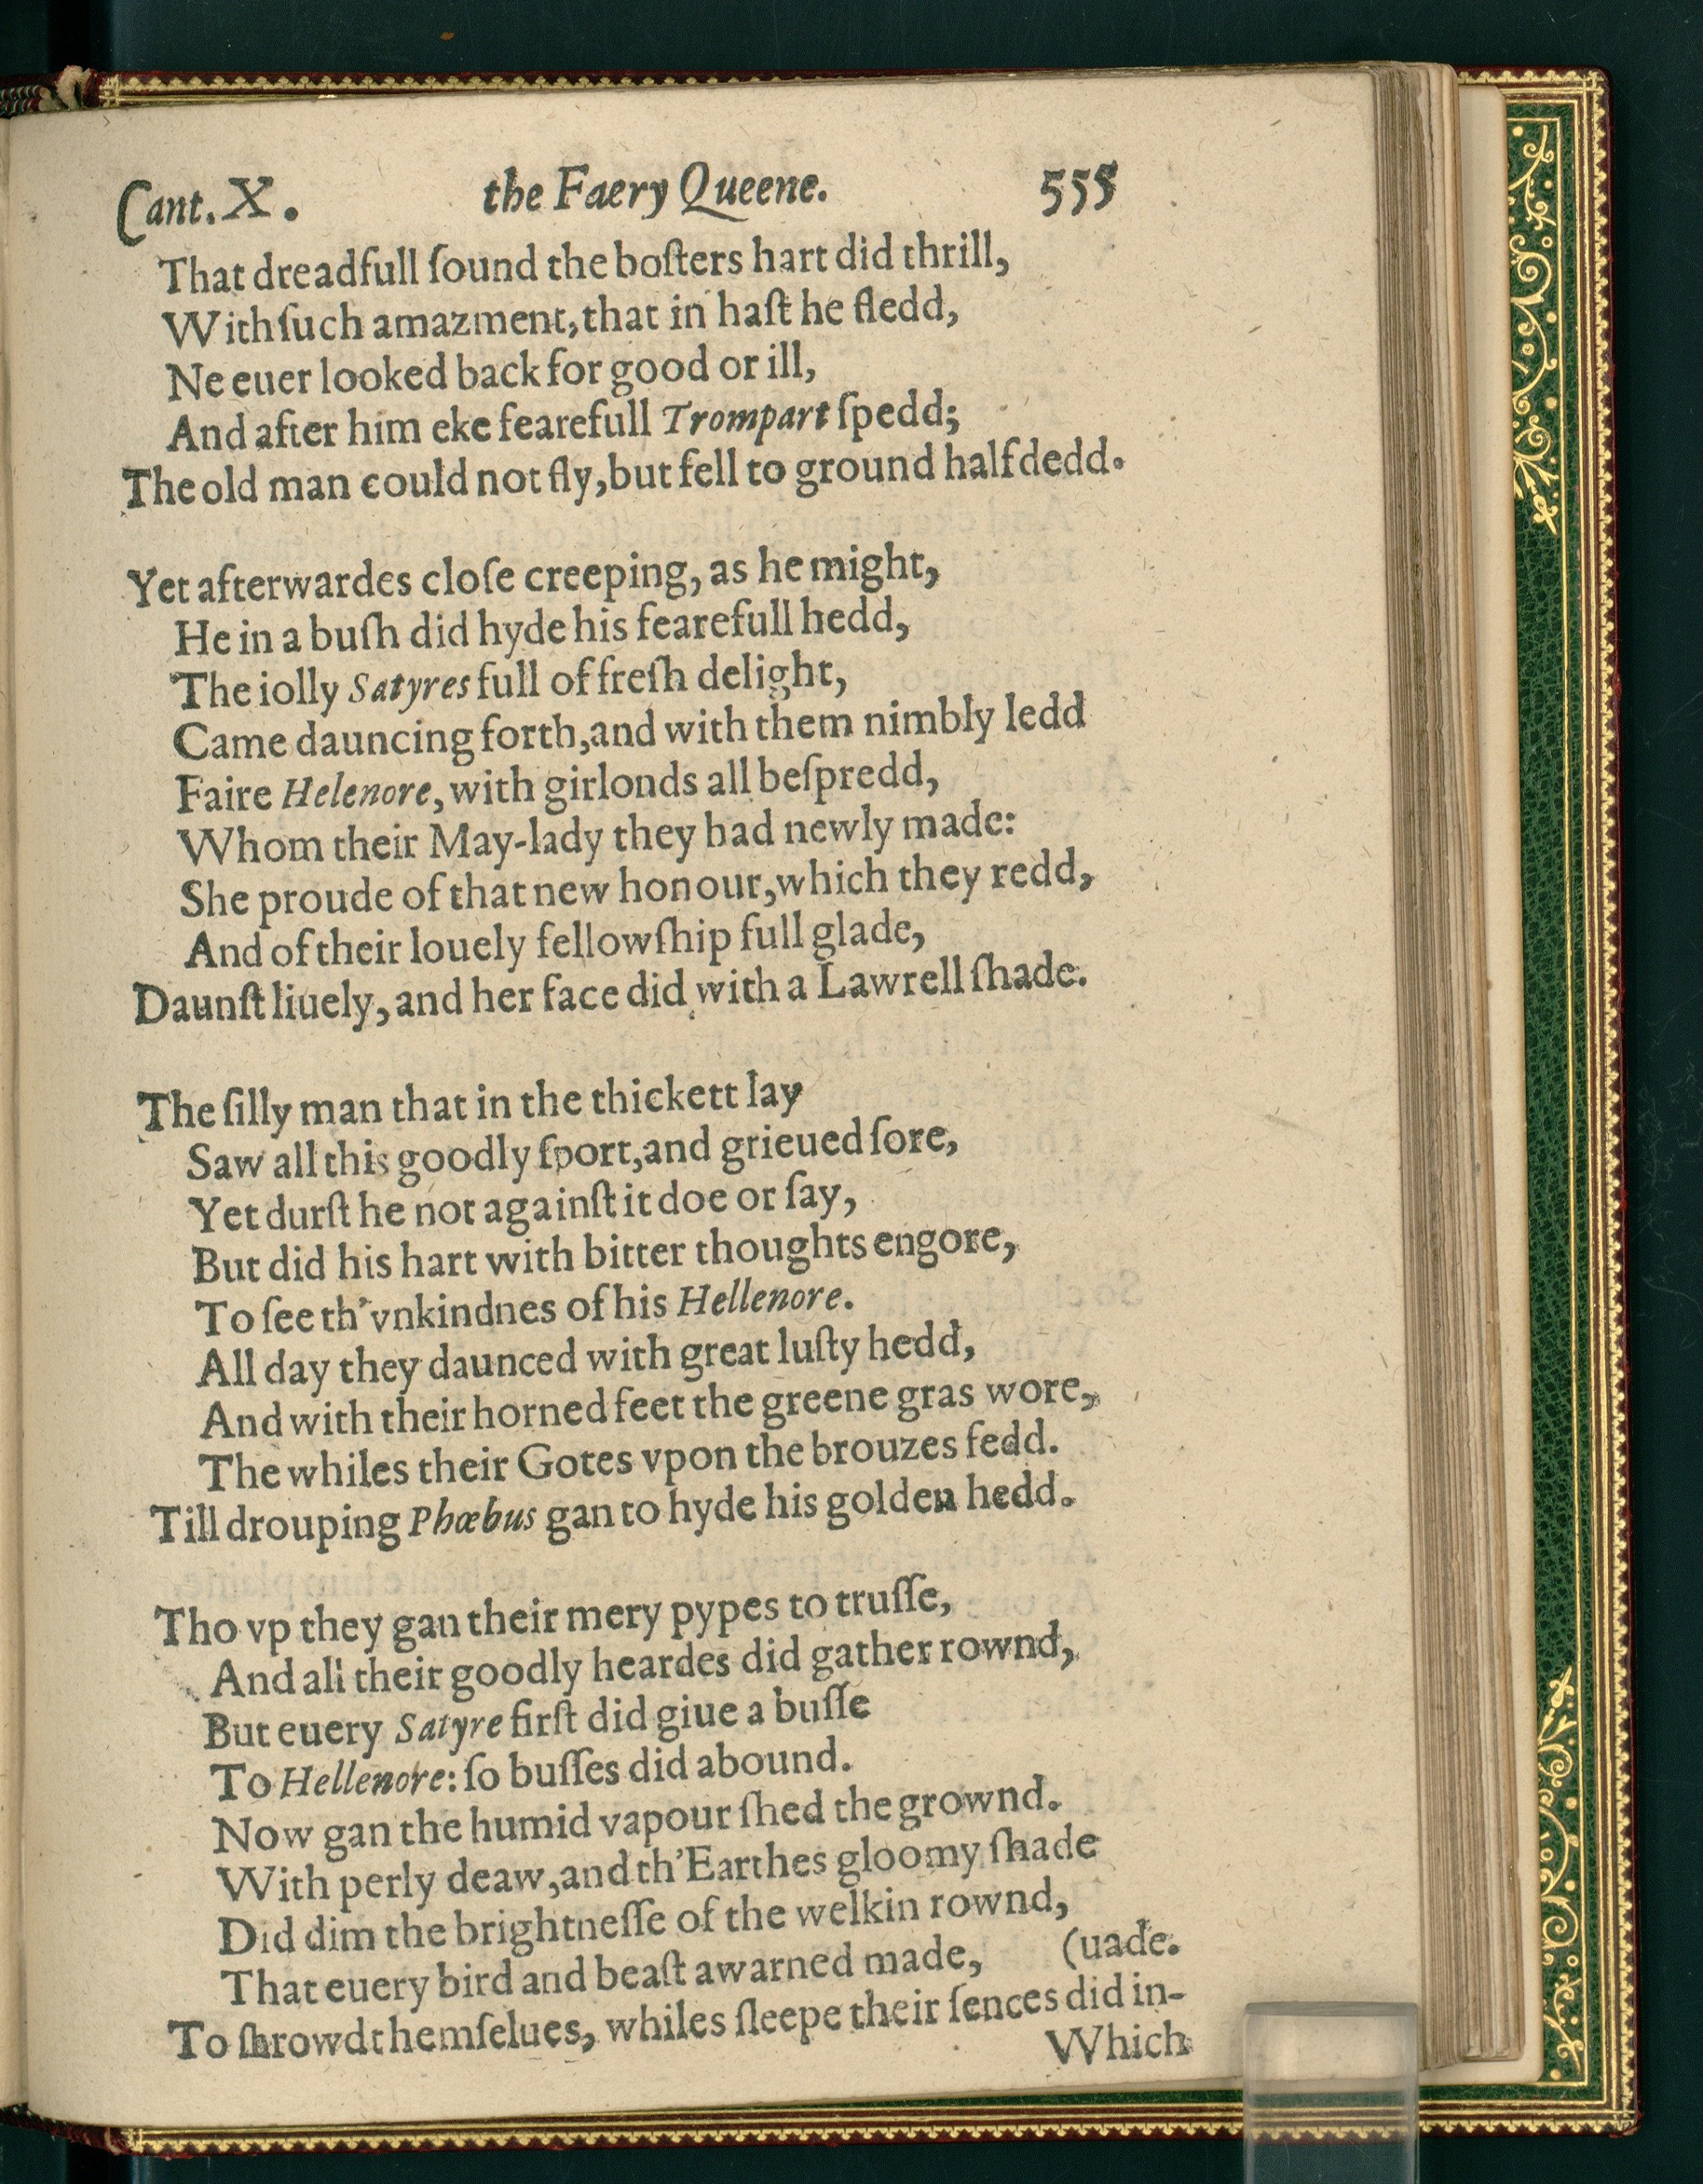 Cant. X. the Faery Queene. 555
That dreadfull ſound the boſters hart did thrill,
With ſuch amazment, that in haſt he fledd,
Ne euer looked back for good or ill,
And after him eke fearefull Trompart ſpedd;
The old man could not fly, but fell to ground half dedd.
Yet afterwardes cloſe creeping, as he might,
He in a buſh did hyde his fearefull hedd,
The iolly Satyres full of freſh delight,
Came dauncing forth, and with them nimbly ledd
Faire Helenore, with girlonds all beſpredd,
Whom their May-lady they had newly made:
She proude of that new honour, which they redd,
And of their louely fellowſhip full glade,
Daunſt liuely, and her face did with a Lawrell ſhade.
The ſilly man that in the thickett lay
Saw all this goodly ſport, and grieued ſore,
Yet durſt he not againſt it doe or ſay,
But did his hart with bitter thoughts engore,
To ſee th'vnkindnes of his Hellenore.
All day they daunced with great luſty hedd,
And with their horned feet the greene gras wore,
The whiles their Gotes vpon the brouzes fedd.
Till drouping Phœbus gan to hyde his golden hedd.
Tho vp they gan their mery pypes to truſſe,
And all their goodly heardes did gather rownd,
But euery Satyre firſt did giue a buſſe
To Hellenore: ſo buſſes did abound.
Now gan the humid vapour ſhed the grownd.
With perly deaw, and th'Earthes gloomy ſhade
Did dim the brightneſſe of the welkin rownd,
That euery bird and beaſt awarned made, (uade.
To ſhrowd themſelues, whiles ſleepe their ſences did in-
Which